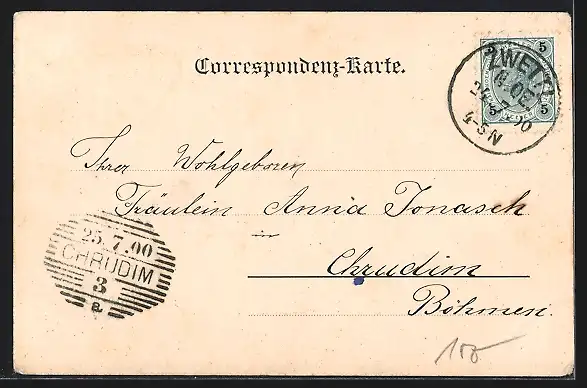 Correspondenz-Karte.
5 5
5 5
ZWETTL
N.-OE.
24.7.00
4-5N
Ihrer Wohlgeboren
Fräulein Anna Jonasch
in
Chrudim
Böhmen.
25.7.00
CHRUDIM
3
a